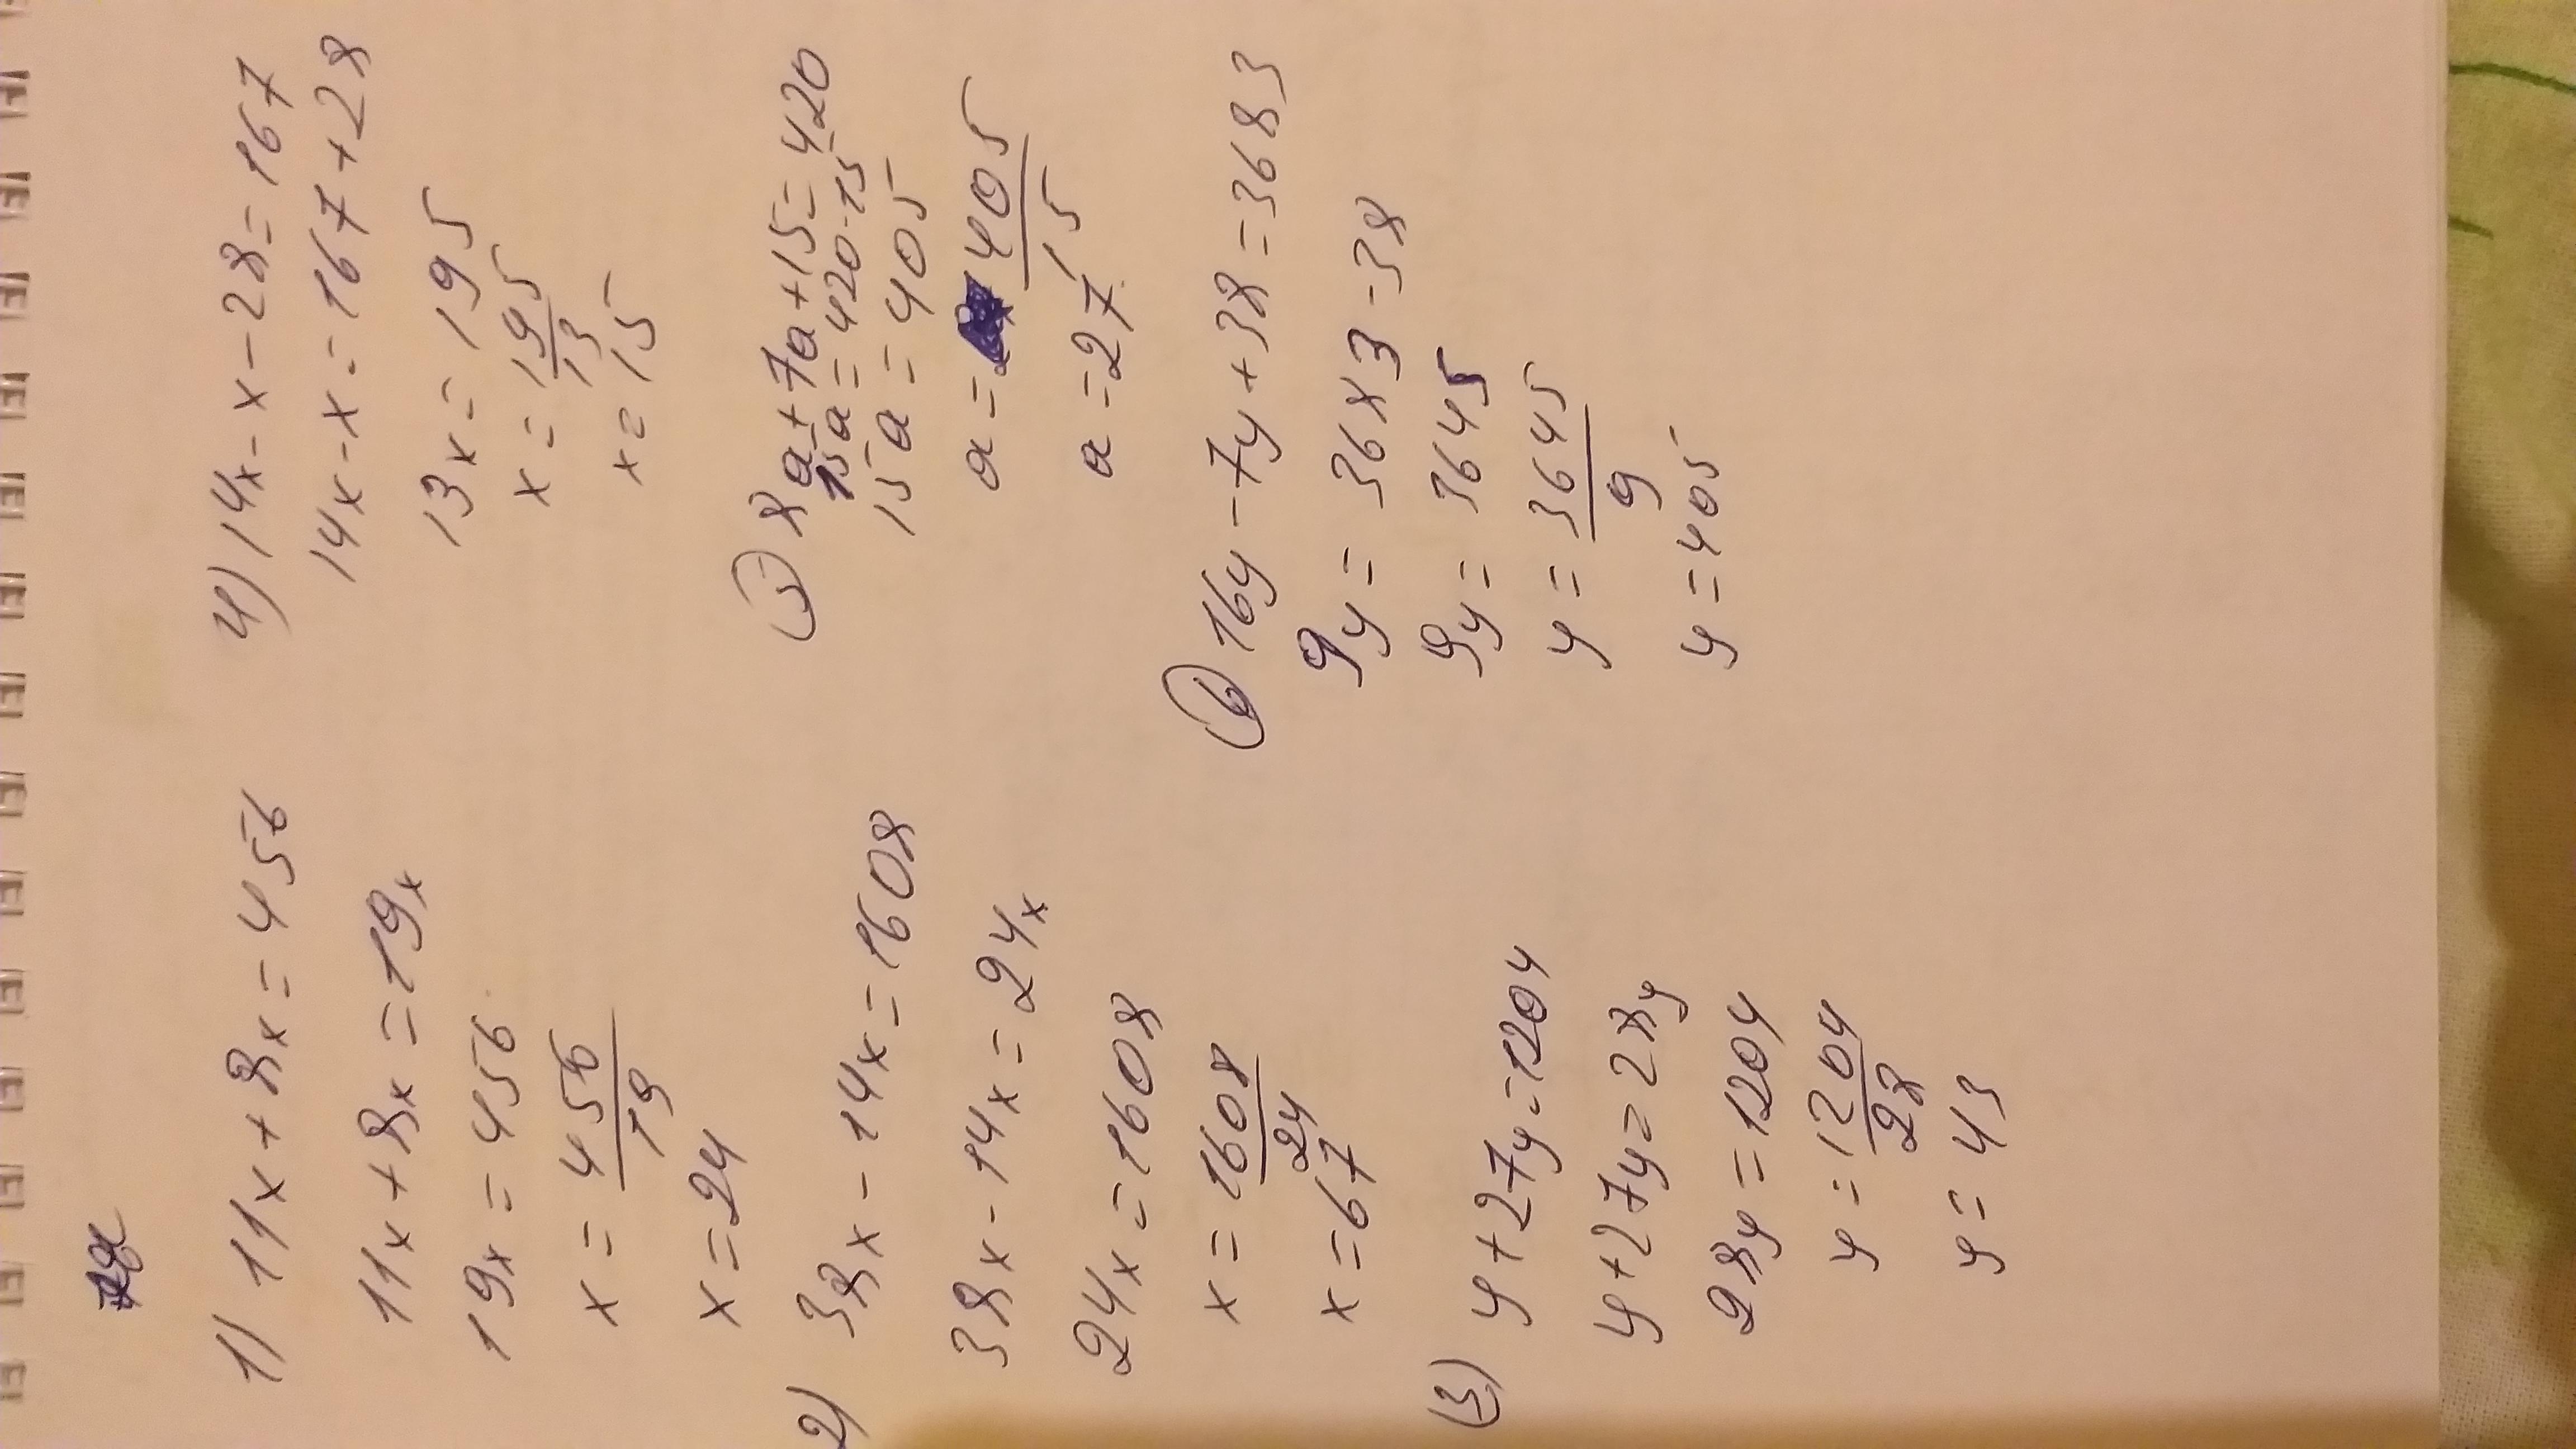 1) 11x + 8x = 456
11x + 8x = 19x
19x = 456
x = 456/19
x = 24
2) 38x - 14x = 1608
38x - 14x = 24x
24x = 1608
x = 1608/24
x = 67
3) y + 27y = 1204
y + 27y = 28y
28y = 1204
y = 1204/28
y = 43
4) 14x - x - 28 = 167
14x - x = 167 + 28
13x = 195
x = 195/13
x = 15
5) 8a + 7a + 15 = 420
15a = 420 - 15
15a = 405
a = 405/15
a = 27
6) 16y - 7y + 38 = 3683
9y = 3683 - 38
9y = 3645
y = 3645/9
y = 405